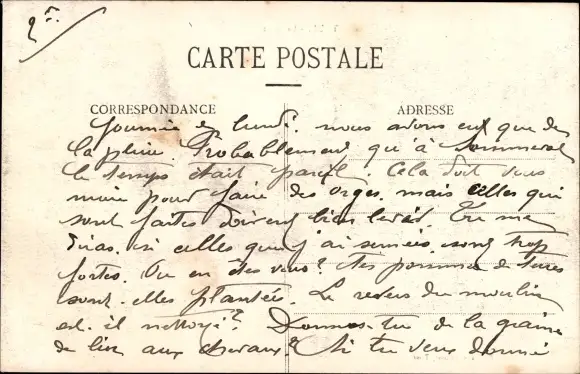 2e
CARTE POSTALE
CORRESPONDANCE ADRESSE
Journée de lundi. nous avons eu que de
la pluie. Probablement qu'à Sommeval
le temps était pareil. Cela doit vous
nuire pour faire des orges. mais celles qui
sont faites doivent bien lever. Tu me
diras. si celles que j'ai semées. sont trop
fortes. Ou en êtes vous? Tes pommes de terres
sont. elles plantées. Le revers du moulin
est. il nettoyé? Donnes-tu de la graine
de lin aux chevaux? Si tu veux donné